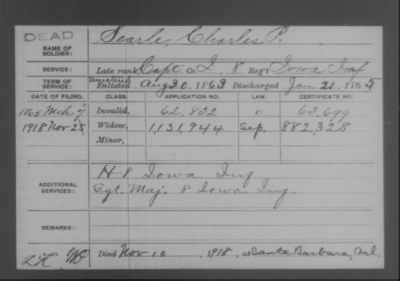 DEAD
NAME OF SOLDIER: Searle, Charles P.
SERVICE: Late rank, Capt Co. I, 8 Reg't Iowa Inf
TERM OF SERVICE: Enlisted Aug 30, 1863 Discharged Jan 21, 1865
DATE OF FILING. CLASS. APPLICATION NO. LAW. CERTIFICATE NO.
1865 Mch 7 Invalid, 62,832 63,699
1918 Nov 25 Widow, 1,131,944 Sep. 882,328
Minor,
ADDITIONAL SERVICES: H 8 Iowa Inf
Sgt. Maj. 8 Iowa Inf.
REMARKS:
Died Nov 10, 1918, at Santa Barbara, Cal.